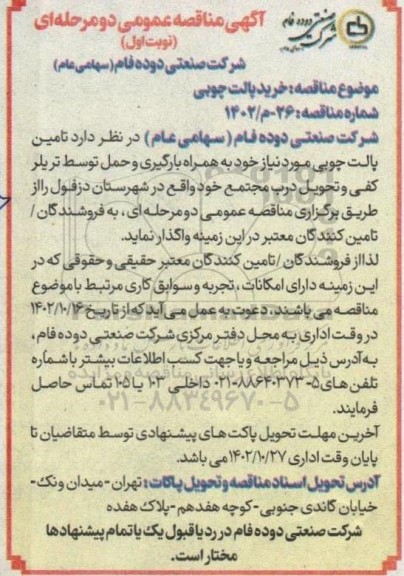 آگهی مناقصه عمومی دو مرحله‌ای
(نوبت اول)
شرکت صنعتی دوده فام
شرکت صنعتی دوده فام (سهامی عام)
موضوع مناقصه: خرید پالت چوبی
شماره مناقصه: ۲۶-م/۱۴۰۲
شرکت صنعتی دوده فام (سهامی عام) در نظر دارد تامین
پالت چوبی مورد نیاز خود به همراه بارگیری و حمل توسط تریلر
کفی و تحویل درب مجتمع خود واقع در شهرستان دزفول را از
طریق برگزاری مناقصه عمومی دو مرحله‌ای، به فروشندگان/
تامین کنندگان معتبر در این زمینه واگذار نماید.
لذا از فروشندگان/تامین کنندگان معتبر حقیقی و حقوقی که در
این زمینه دارای امکانات، تجربه و سوابق کاری مرتبط با موضوع
مناقصه می باشند. دعوت به عمل می آید که از تاریخ ۱۴۰۲/۱۰/۱۶
در وقت اداری به محل دفتر مرکزی شرکت صنعتی دوده فام،
به آدرس ذیل مراجعه و یا جهت کسب اطلاعات بیشتر با شماره
تلفن های ۵-۸۸۶۴۰۳۷۳-۰۲۱ داخلی ۱۰۳ یا ۱۰۵ تماس حاصل
فرمایند.
۰۲۱-۸۸۳۴۹۶۷۰-۵
آخرین مهلت تحویل پاکت های پیشنهادی توسط متقاضیان تا
پایان وقت اداری ۱۴۰۲/۱۰/۲۷ می باشد.
آدرس تحویل اسناد مناقصه و تحویل پاکات: تهران-میدان ونک-
خیابان گاندی جنوبی-کوچه هفدهم-پلاک هفده
شرکت صنعتی دوده فام در رد یا قبول یک یا تمام پیشنهادها
مختار است.